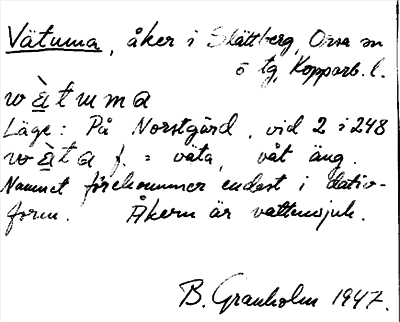 Vätuma, åker i Slättberg, Orsa sn
ö tg, Kopparb. l.
wà̱tuma
Läge: På Norstgård, vid 2 i 248
wà̱ta f. = väta, våt äng.
Namnet förekommer endast i dativ-
form. Åkern är vattensjuk.
B. Granholm 1947.